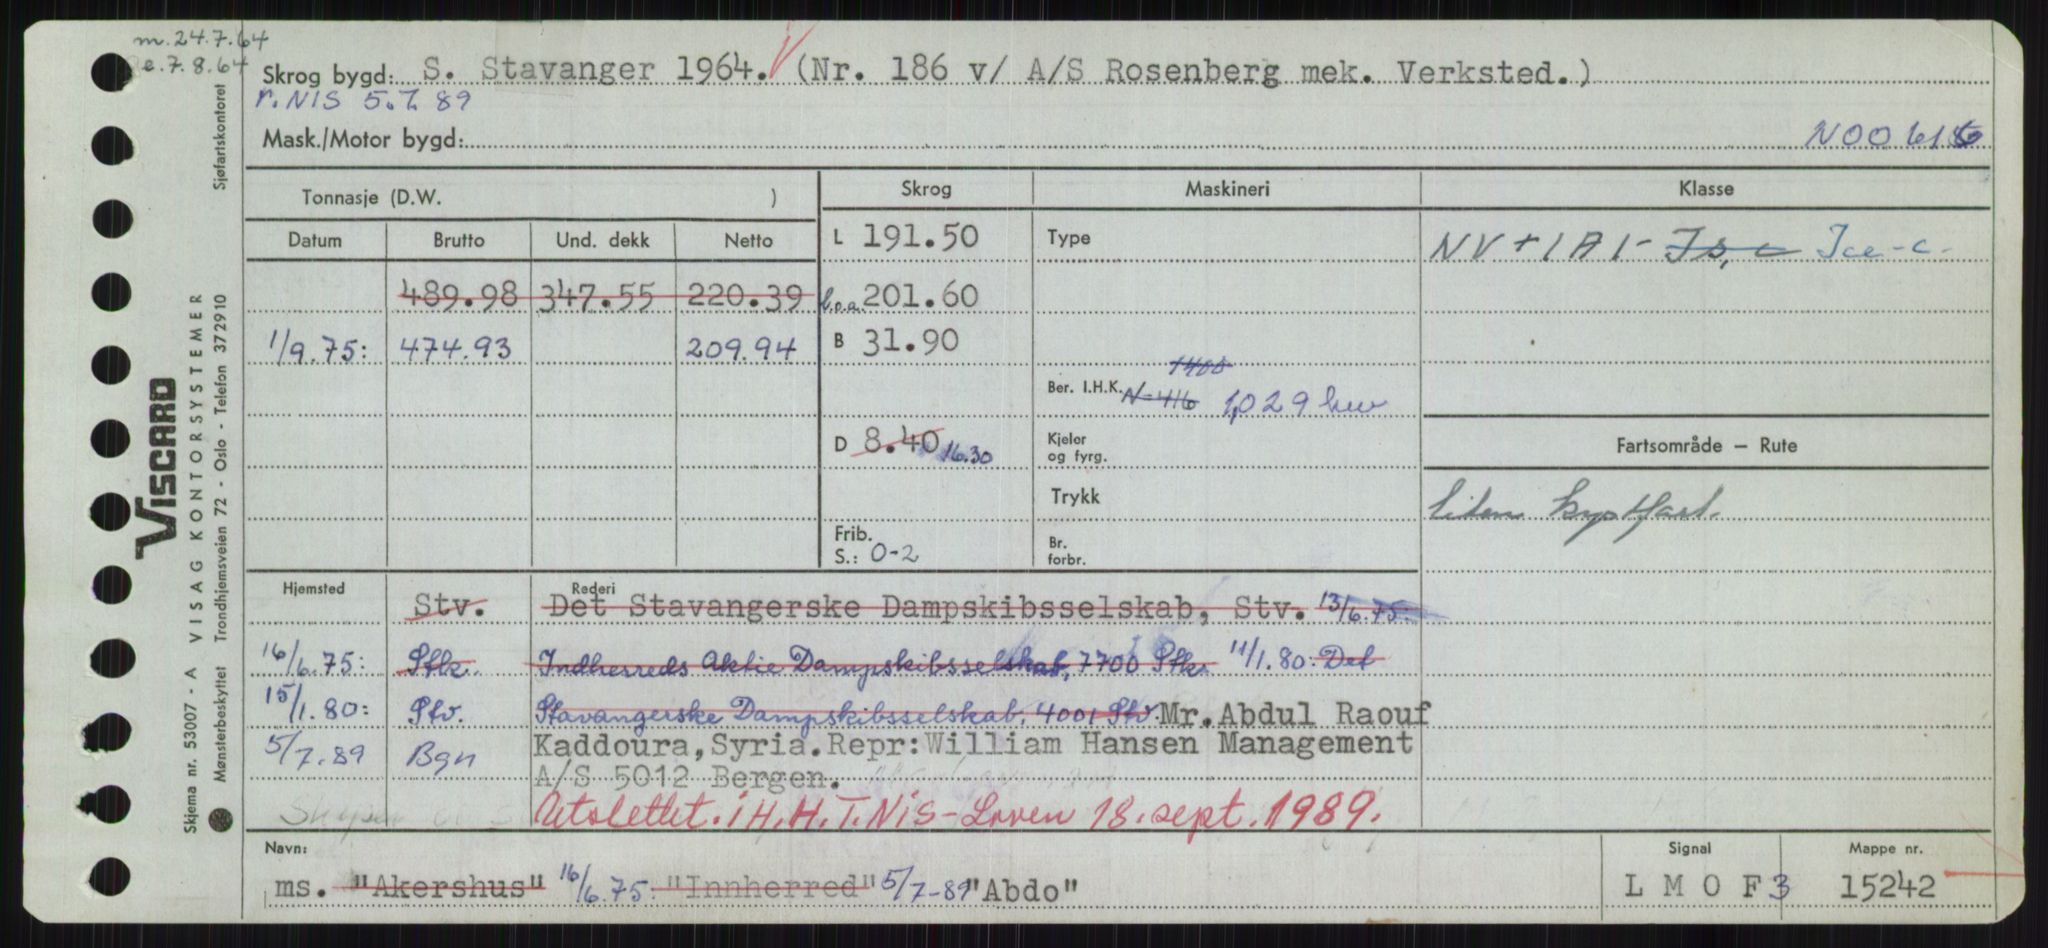 m. 24.7.64
e. 7.8.64
Skrog bygd: S. Stavanger 1964. (Nr. 186 v/ A/S Rosenberg mek. Verksted.)
r. NIS 5.7.89
Mask./Motor bygd:
Tonnasje (D.W. ) Skrog Maskineri Klasse
Datum Brutto Und. dekk Netto L 191.50 Type NV + 1A1- Is, c Ice-c-
489.98 347.55 220.39 l.o.a. 201.60
1/9.75: 474.93 209.94 B 31.90
1400
Ber. I.H.K. N-416 1,029 kw
D 8.40 16.30 Kjeler og fyrg. Fartsområde – Rute
Trykk Liten kystfart.
Frib. S.: 0-2 Br. forbr.
Hjemsted Rederi
Stv. Det Stavangerske Dampskibsselskab, Stv. 13/6.75:
16/6.75: Stkr. Indherreds Aktie Dampskibsselskab, 7700 Stkr 11/1.80: Det
15/1.80: Stv. Stavangerske Dampskibsselskab, 4001 Stv. Mr. Abdul Raouf
5/7.89 Bgn Kaddoura, Syria. Repr: William Hansen Management
A/S 5012 Bergen.
Utslettet. i H.H.T. NiS-Loven 18. sept. 1989.
Navn: Signal Mappe nr.
ms. "Akershus" 16/6.75: "Innherred" 5/7-89 "Abdo" L M O F 3 15242
Sjøfartskontoret
VISCARD
VISAG KONTORSYSTEMER
Trondhjemsveien 72 - Oslo - Telefon 37 29 10
Skjema nr. 53007 - A
Mønsterbeskyttet